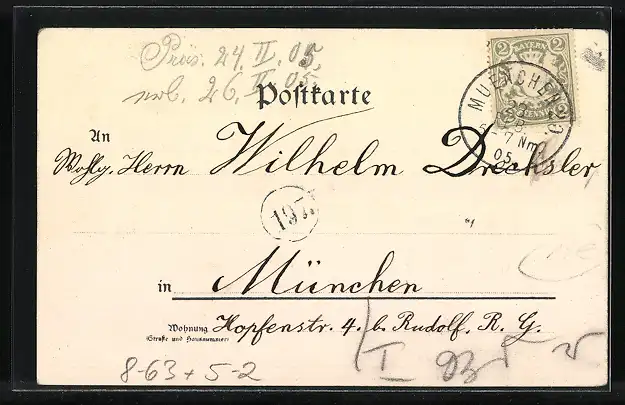 Präs. 24. II. 05.
erl. 26. II. 05.
Postkarte
2 BAYERN 2
2 PFENNIG 2
MUENCHEN
7 Nm
05
An
Wohlg. Herrn Wilhelm Drechsler
197
in München
Wohnung Hopfenstr. 4. b. Rudolf, R. G.
(Straße und Hausnummer)
8-63+5-2
I